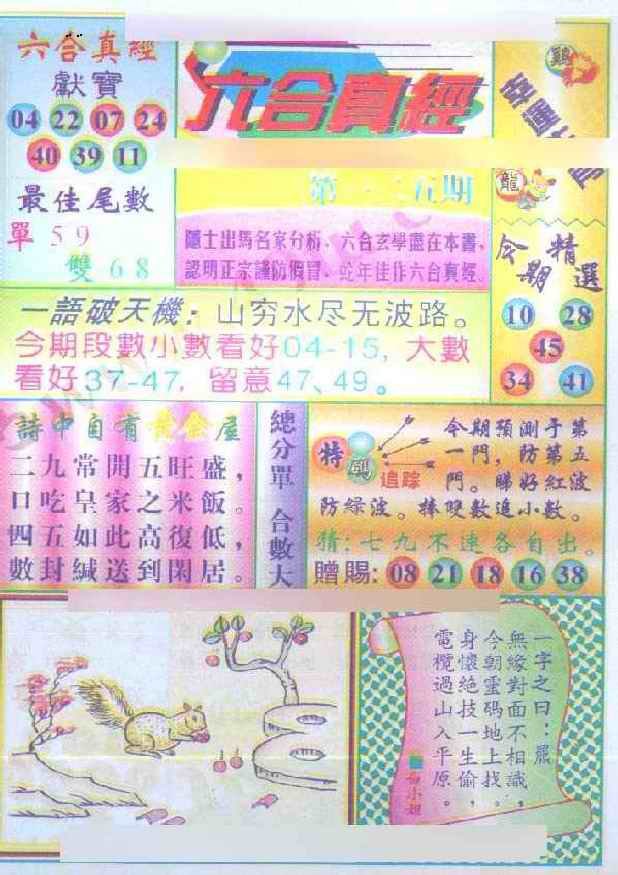 六合真經
獻寶
04 22 07 24
40 39 11
最佳尾數
單 59
雙 68
六合真經
隱士出馬名家分析、六合玄學盡在本書、
認明正宗謹防假冒、蛇年佳作六合真經.
雞
龍
今期精選
10 28
45
34 41
一語破天機：山穷水尽无波路。
今期段數小數看好04-15, 大數
看好37-47, 留意47、49。
詩中自有黃金屋
二九常開五旺盛，
口吃皇家之米飯。
四五如此高復低，
數封緘送到閑居。
總分單 合數大
特碼追踪
今期預測于第
一門，防第五
門。睇好紅波
防綠波。捧雙數追小數。
猜：七九不連各自出。
贈賜：08 21 18 16 38
一字之曰：羆
無緣對面不相識，
今朝靈碼地上找。
身懷絕技一生偷，
電欖過山入平原。